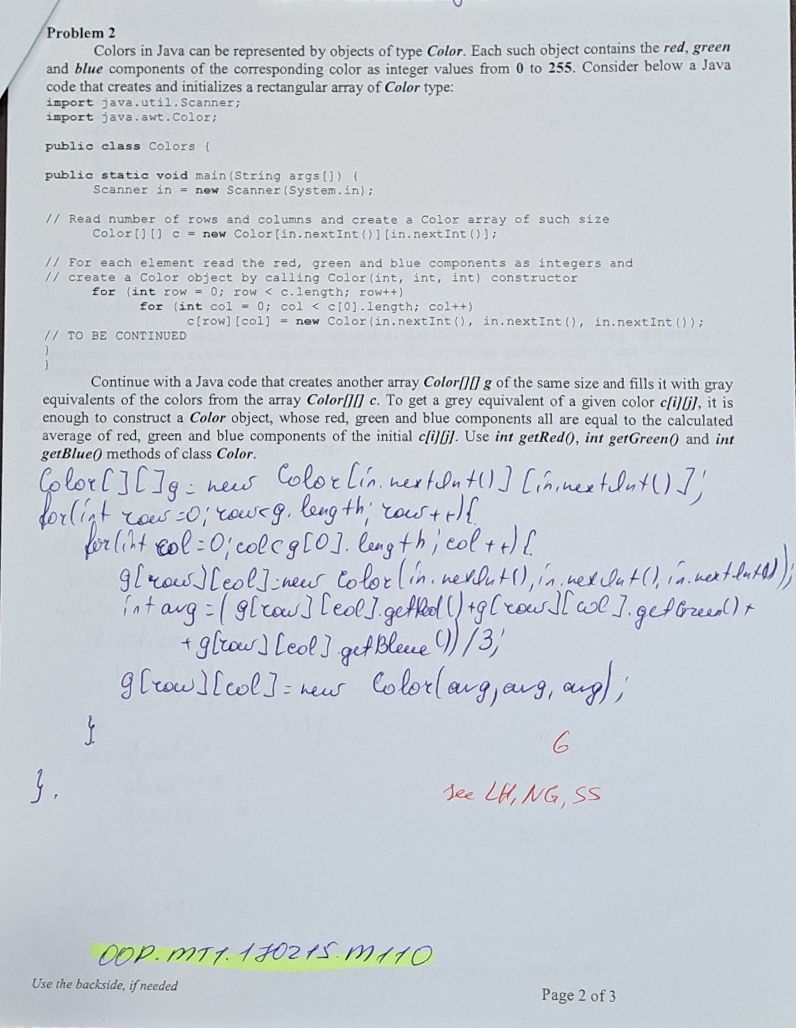 Problem 2
Colors in Java can be represented by objects of type Color. Each such object contains the red, green
and blue components of the corresponding color as integer values from 0 to 255. Consider below a Java
code that creates and initializes a rectangular array of Color type:
import java.util.Scanner;
import java.awt.Color;
public class Colors {
public static void main(String args[]) {
Scanner in = new Scanner(System.in);
// Read number of rows and columns and create a Color array of such size
Color[][] c = new Color[in.nextInt()][in.nextInt()];
// For each element read the red, green and blue components as integers and
// create a Color object by calling Color(int, int, int) constructor
for (int row = 0; row < c.length; row++)
for (int col = 0; col < c[0].length; col++)
c[row][col] = new Color(in.nextInt(), in.nextInt(), in.nextInt());
// TO BE CONTINUED
}
}
Continue with a Java code that creates another array Color[][] g of the same size and fills it with gray
equivalents of the colors from the array Color[][] c. To get a grey equivalent of a given color c[i][j], it is
enough to construct a Color object, whose red, green and blue components all are equal to the calculated
average of red, green and blue components of the initial c[i][j]. Use int getRed(), int getGreen() and int
getBlue() methods of class Color.
Color[][]g = new Color[in.nextInt()][in.nextInt()];
for(int row=0;row<g.length;row++){
for(int col=0;col<g[0].length;col++){
g[row][col]=new Color(in.nextInt(),in.nextInt(),in.nextInt());
int avg=(g[row][col].getRed()+g[row][col].getGreen()+
+g[row][col].getBleue())/3;
g[row][col]=new Color(avg,avg,avg);
}
}.
6
see LH, NG, SS
OOP.MT1.170215.M110
Use the backside, if needed
Page 2 of 3